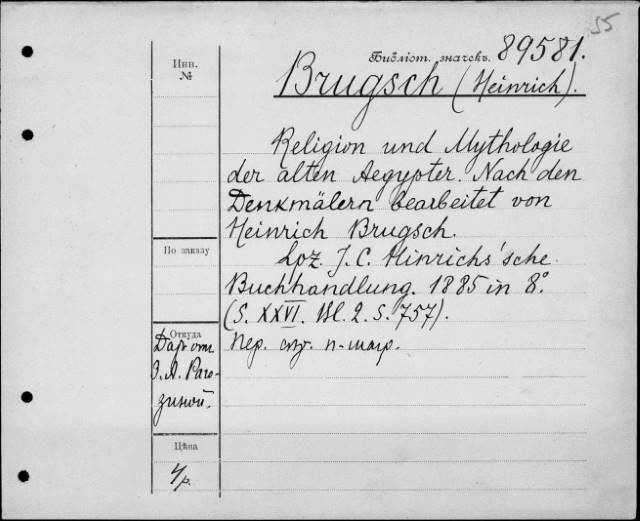 55
Инв.
№
Библіот. значекъ. 89581.
Brugsch (Heinrich).
Religion und Mythologie
der alten Aegypter. Nach den
Denkmälern bearbeitet von
Heinrich Brugsch.
Lpz. J. C. Hinrichs'sche
Buchhandlung. 1885 in 8°.
(S. XXVI. Bl. 2. S. 757).
По заказу
Откуда
Даръ от
З. А. Раго-
зиной.
Пер.
Цѣна
4 р.